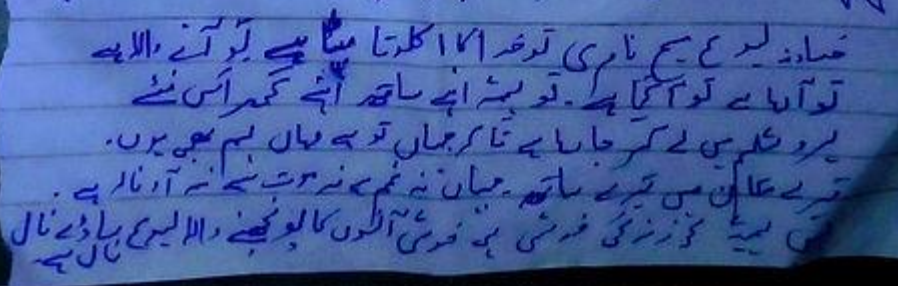 خداوند یسوع مسیح ناصری تو خدا کا اکلوتا بیٹا ہے تو آنے والا ہے
تو آ رہا ہے تو آ گیا ہے۔ تو ہمیں اپنے ساتھ اپنے گھر اس نئے
یروشلم میں لے کر جا رہا ہے تا کہ جہاں تو ہے وہاں ہم بھی ہوں۔
تیرے میں تیرے ساتھ جہاں نہ غم ہے نہ موت ہے نہ آہ و نالہ ہے۔
زندگی خوشی ہی خوشی آنسوؤں کا پونچھنے والا یسوع ساڈے نال
نال ہے